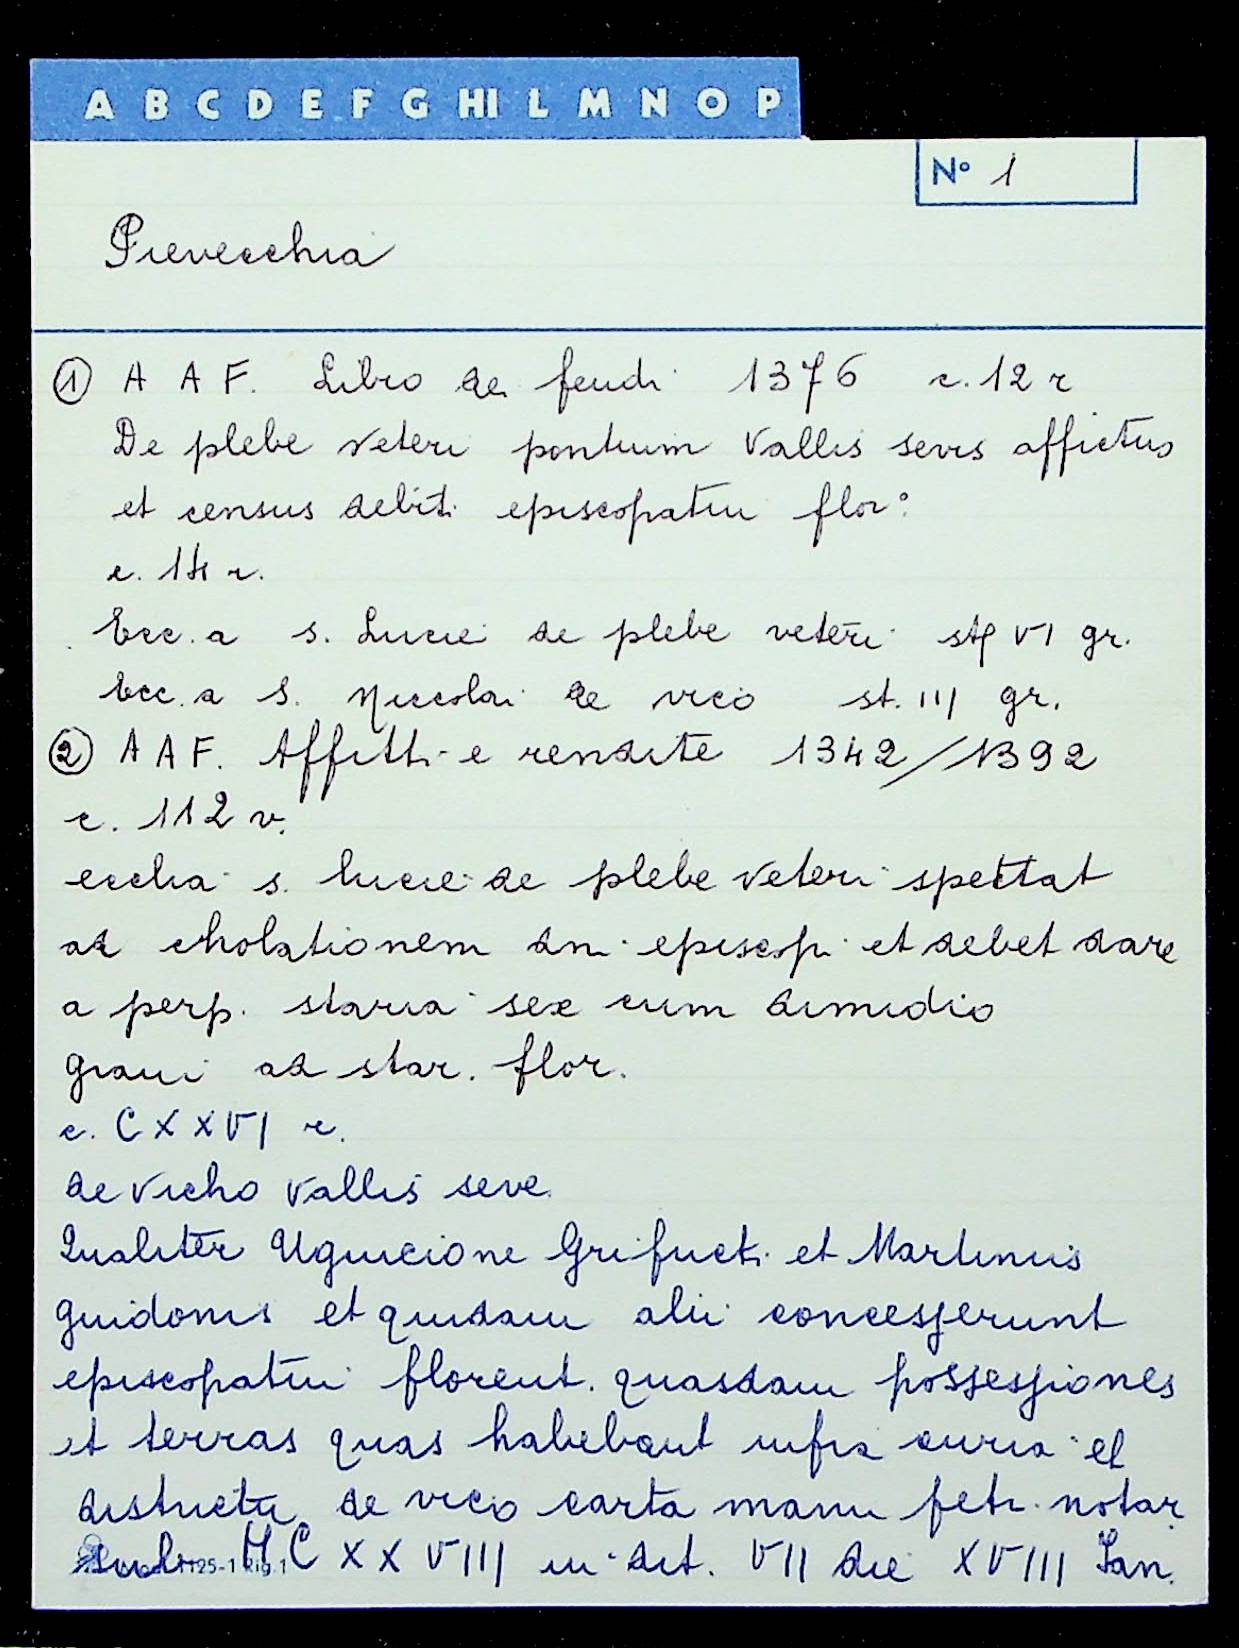 A B C D E F G HI L M N O P
N° 1
Pievecchia
① A A F. Libro de feudi 1376 c. 12 r
De plebe veteri pontium Vallis sevis affictus
et census debiti episcopatui flor:
c. 14 r.
Ecc. a S. Lucie de plebe veteri st VI gr.
Ecc. a S. Niccolai de vico st. III gr.
② A A F. Affitti e rendite 1342/1392
c. 112 v.
ecclia s. lucie de plebe veteri spettat
ad cholationem dni episcopi et debet dare
a perp. staria sex cum dimidio
grani ad star. flor.
c. CXXVI r.
de Vicho Vallis seve.
Qualiter Uguicione Grifucti et Martinus
guidonis et quidam alii concesserunt
episcopatui florent. quasdam possessiones
et terras quas habebant infra curia et
districtu de vico carta manu petri notar
sub MCXXVIII in dit. VII die XVIII Jan.